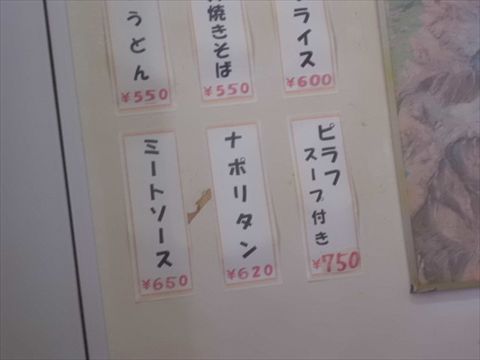 うどん
¥550
焼きそば
¥550
ライス
¥600
ミートソース
¥650
ナポリタン
¥620
ピラフ
スープ付き
¥750